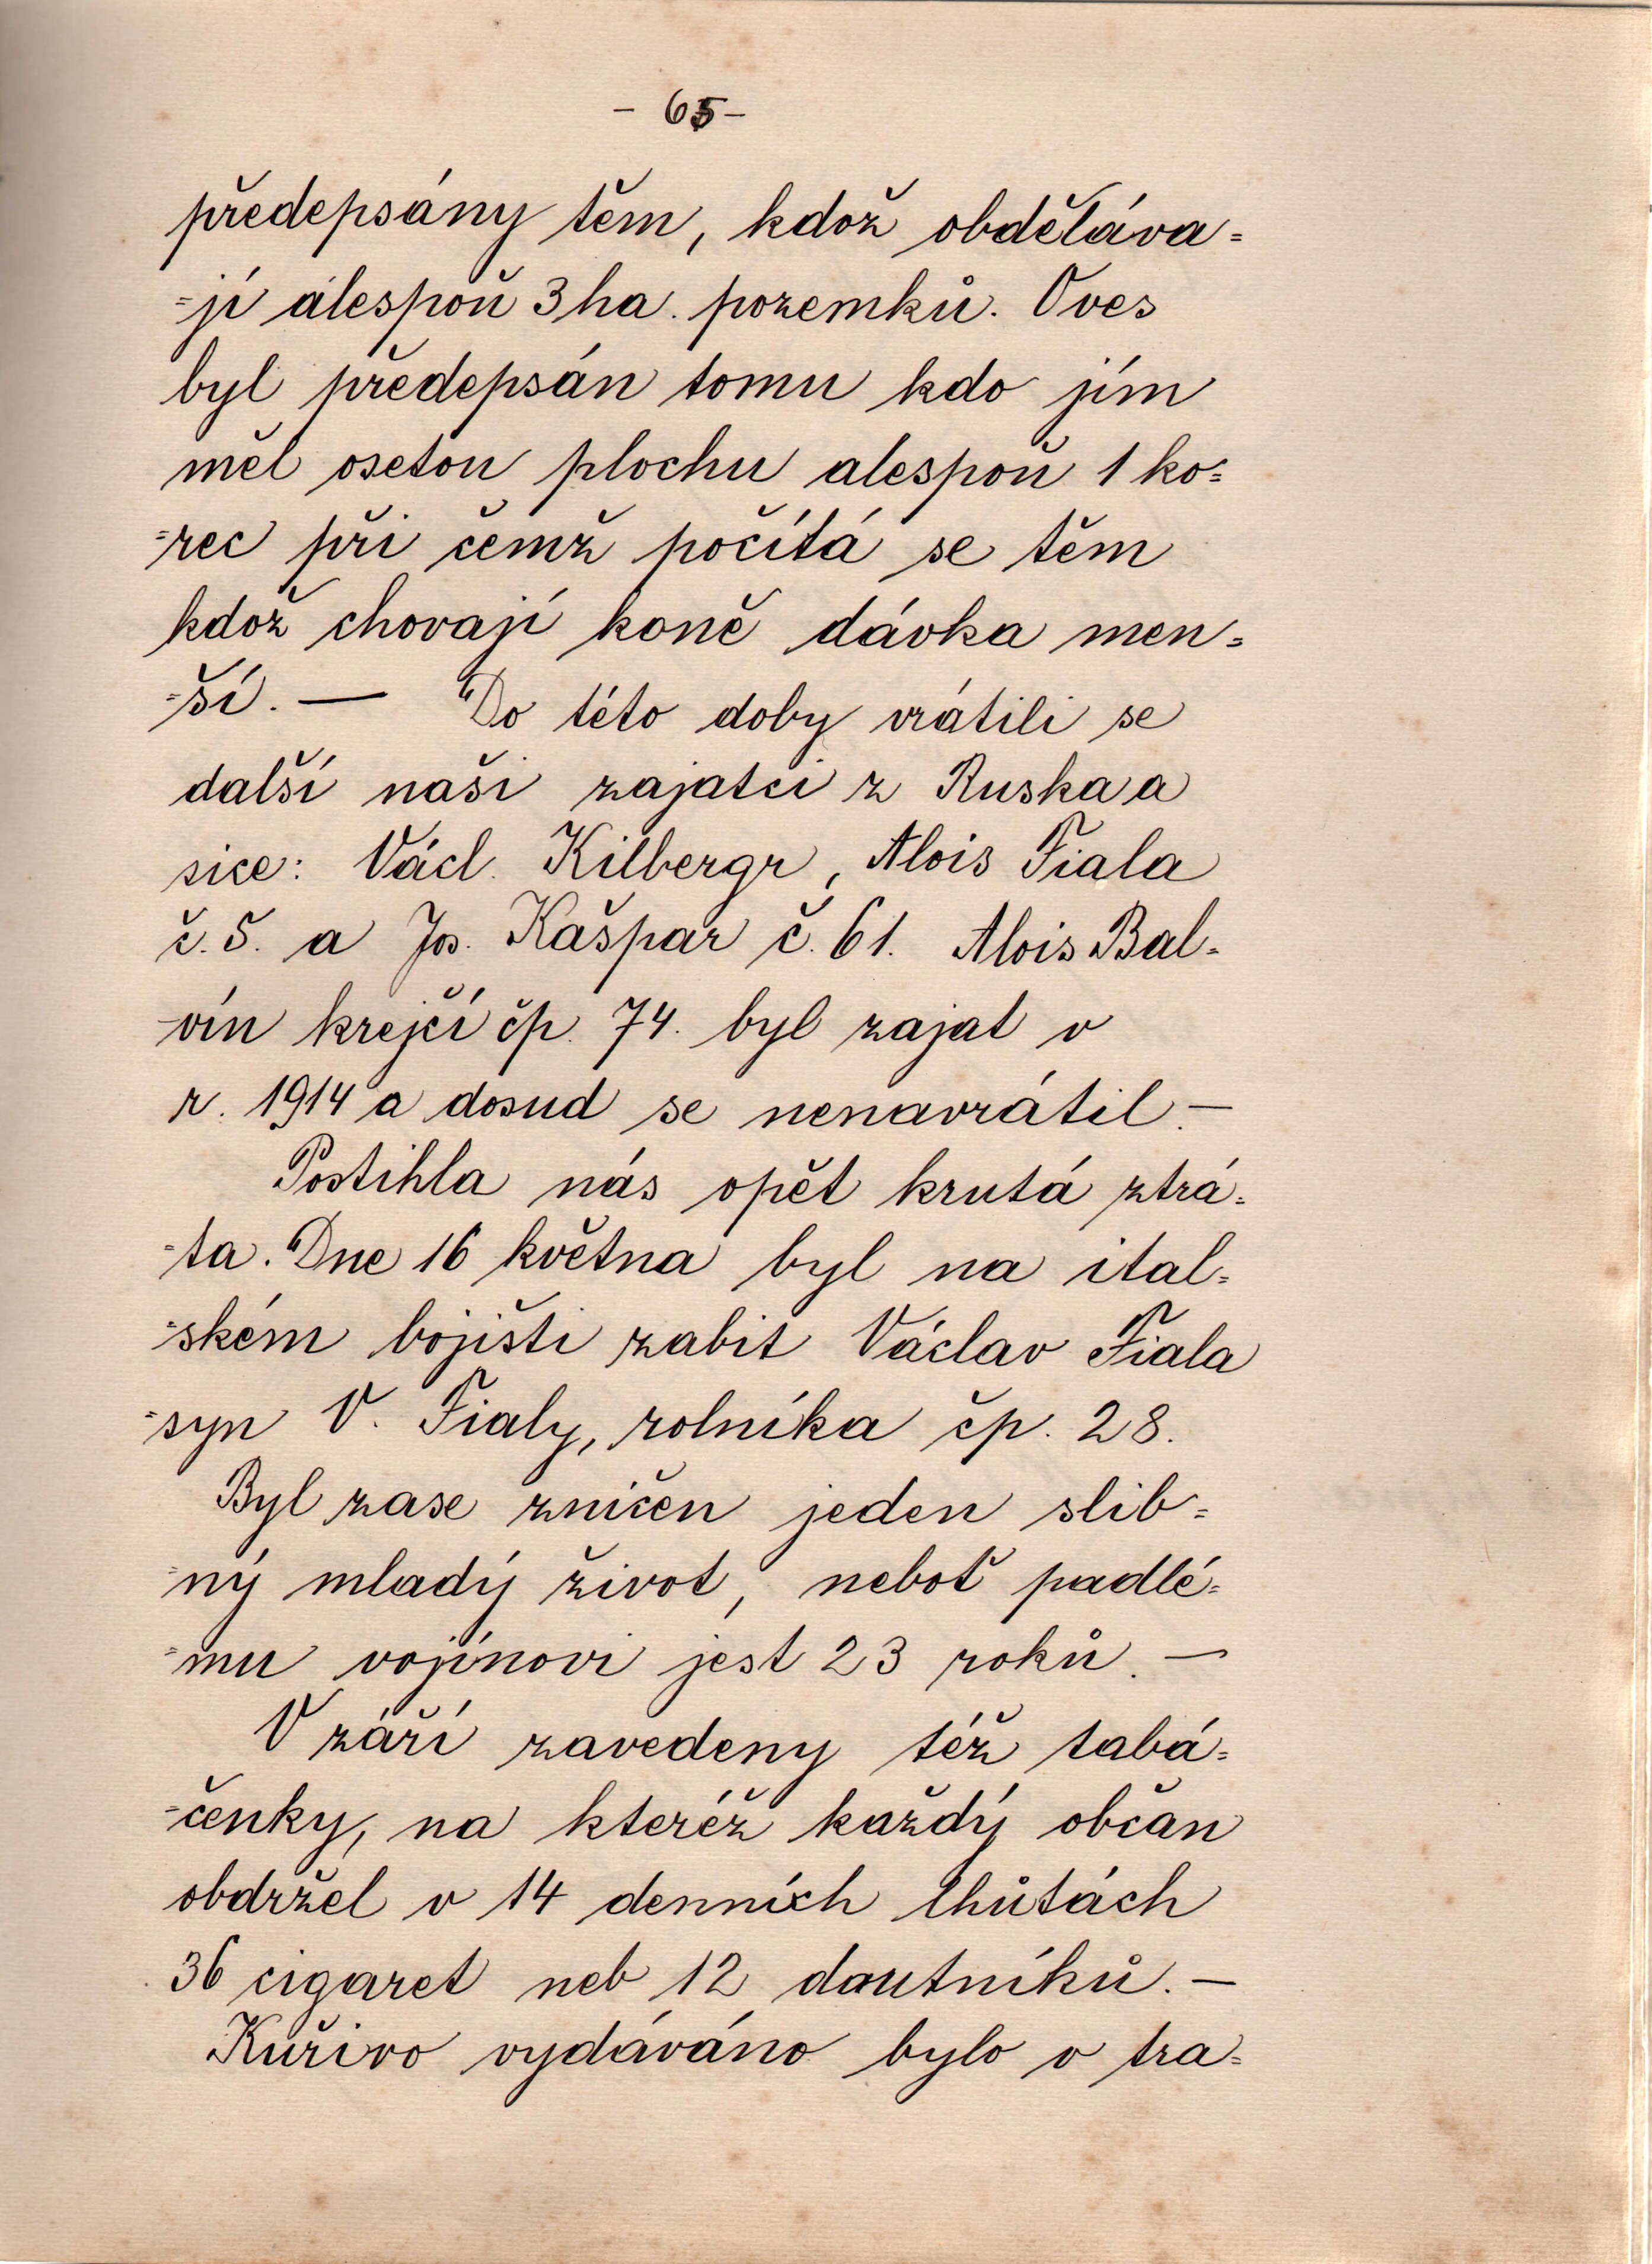 - 65 -
předepsány těm, kdož obděláva=
=jí alespoň 3 ha. pozemků. Oves
byl předepsán tomu kdo jím
měl osetou plochu alespoň 1 ko=
=rec při čemž počítá se těm
kdož chovají koně dávka men=
=ší. — Do této doby vrátili se
další naši zajatci z Ruska a
sice: Václ. Kilbergr, Alois Fiala
č. 5. a Jos. Kašpar č. 61. Alois Bal=
-vín krejčí čp. 74. byl zajat v
r. 1914 a dosud se nenavrátil. —
Postihla nás opět krutá ztrá=
=ta. Dne 16 května byl na ital=
=ském bojišti zabit Václav Fiala
=syn V. Fialy, rolníka čp. 28.
Byl zase zničen jeden slib=
=ný mladý život, neboť padlé=
=mu vojínovi jest 23 roků. —
V září zavedeny též tabá=
=čenky, na kteréž každý občan
obdržel v 14 denních lhůtách
36 cigaret neb 12 doutníků. —
Kuřivo vydáváno bylo v tra=